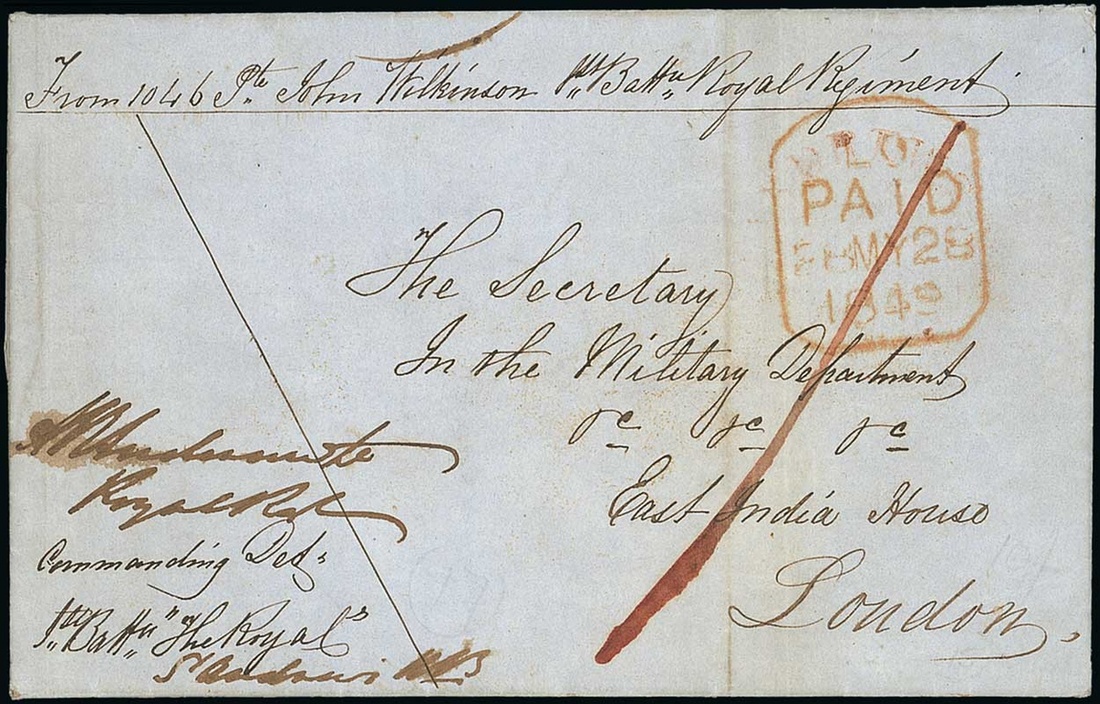 From 1046 Pte John Wilkinson 1st Battn Royal Regiment
PAID
MY 28
1849
The Secretary
In the Military Department
&c &c &c
East India House
London,
Royal Regt
Commanding Det,,
1st Battn "The Royal"
St Andrews N.B